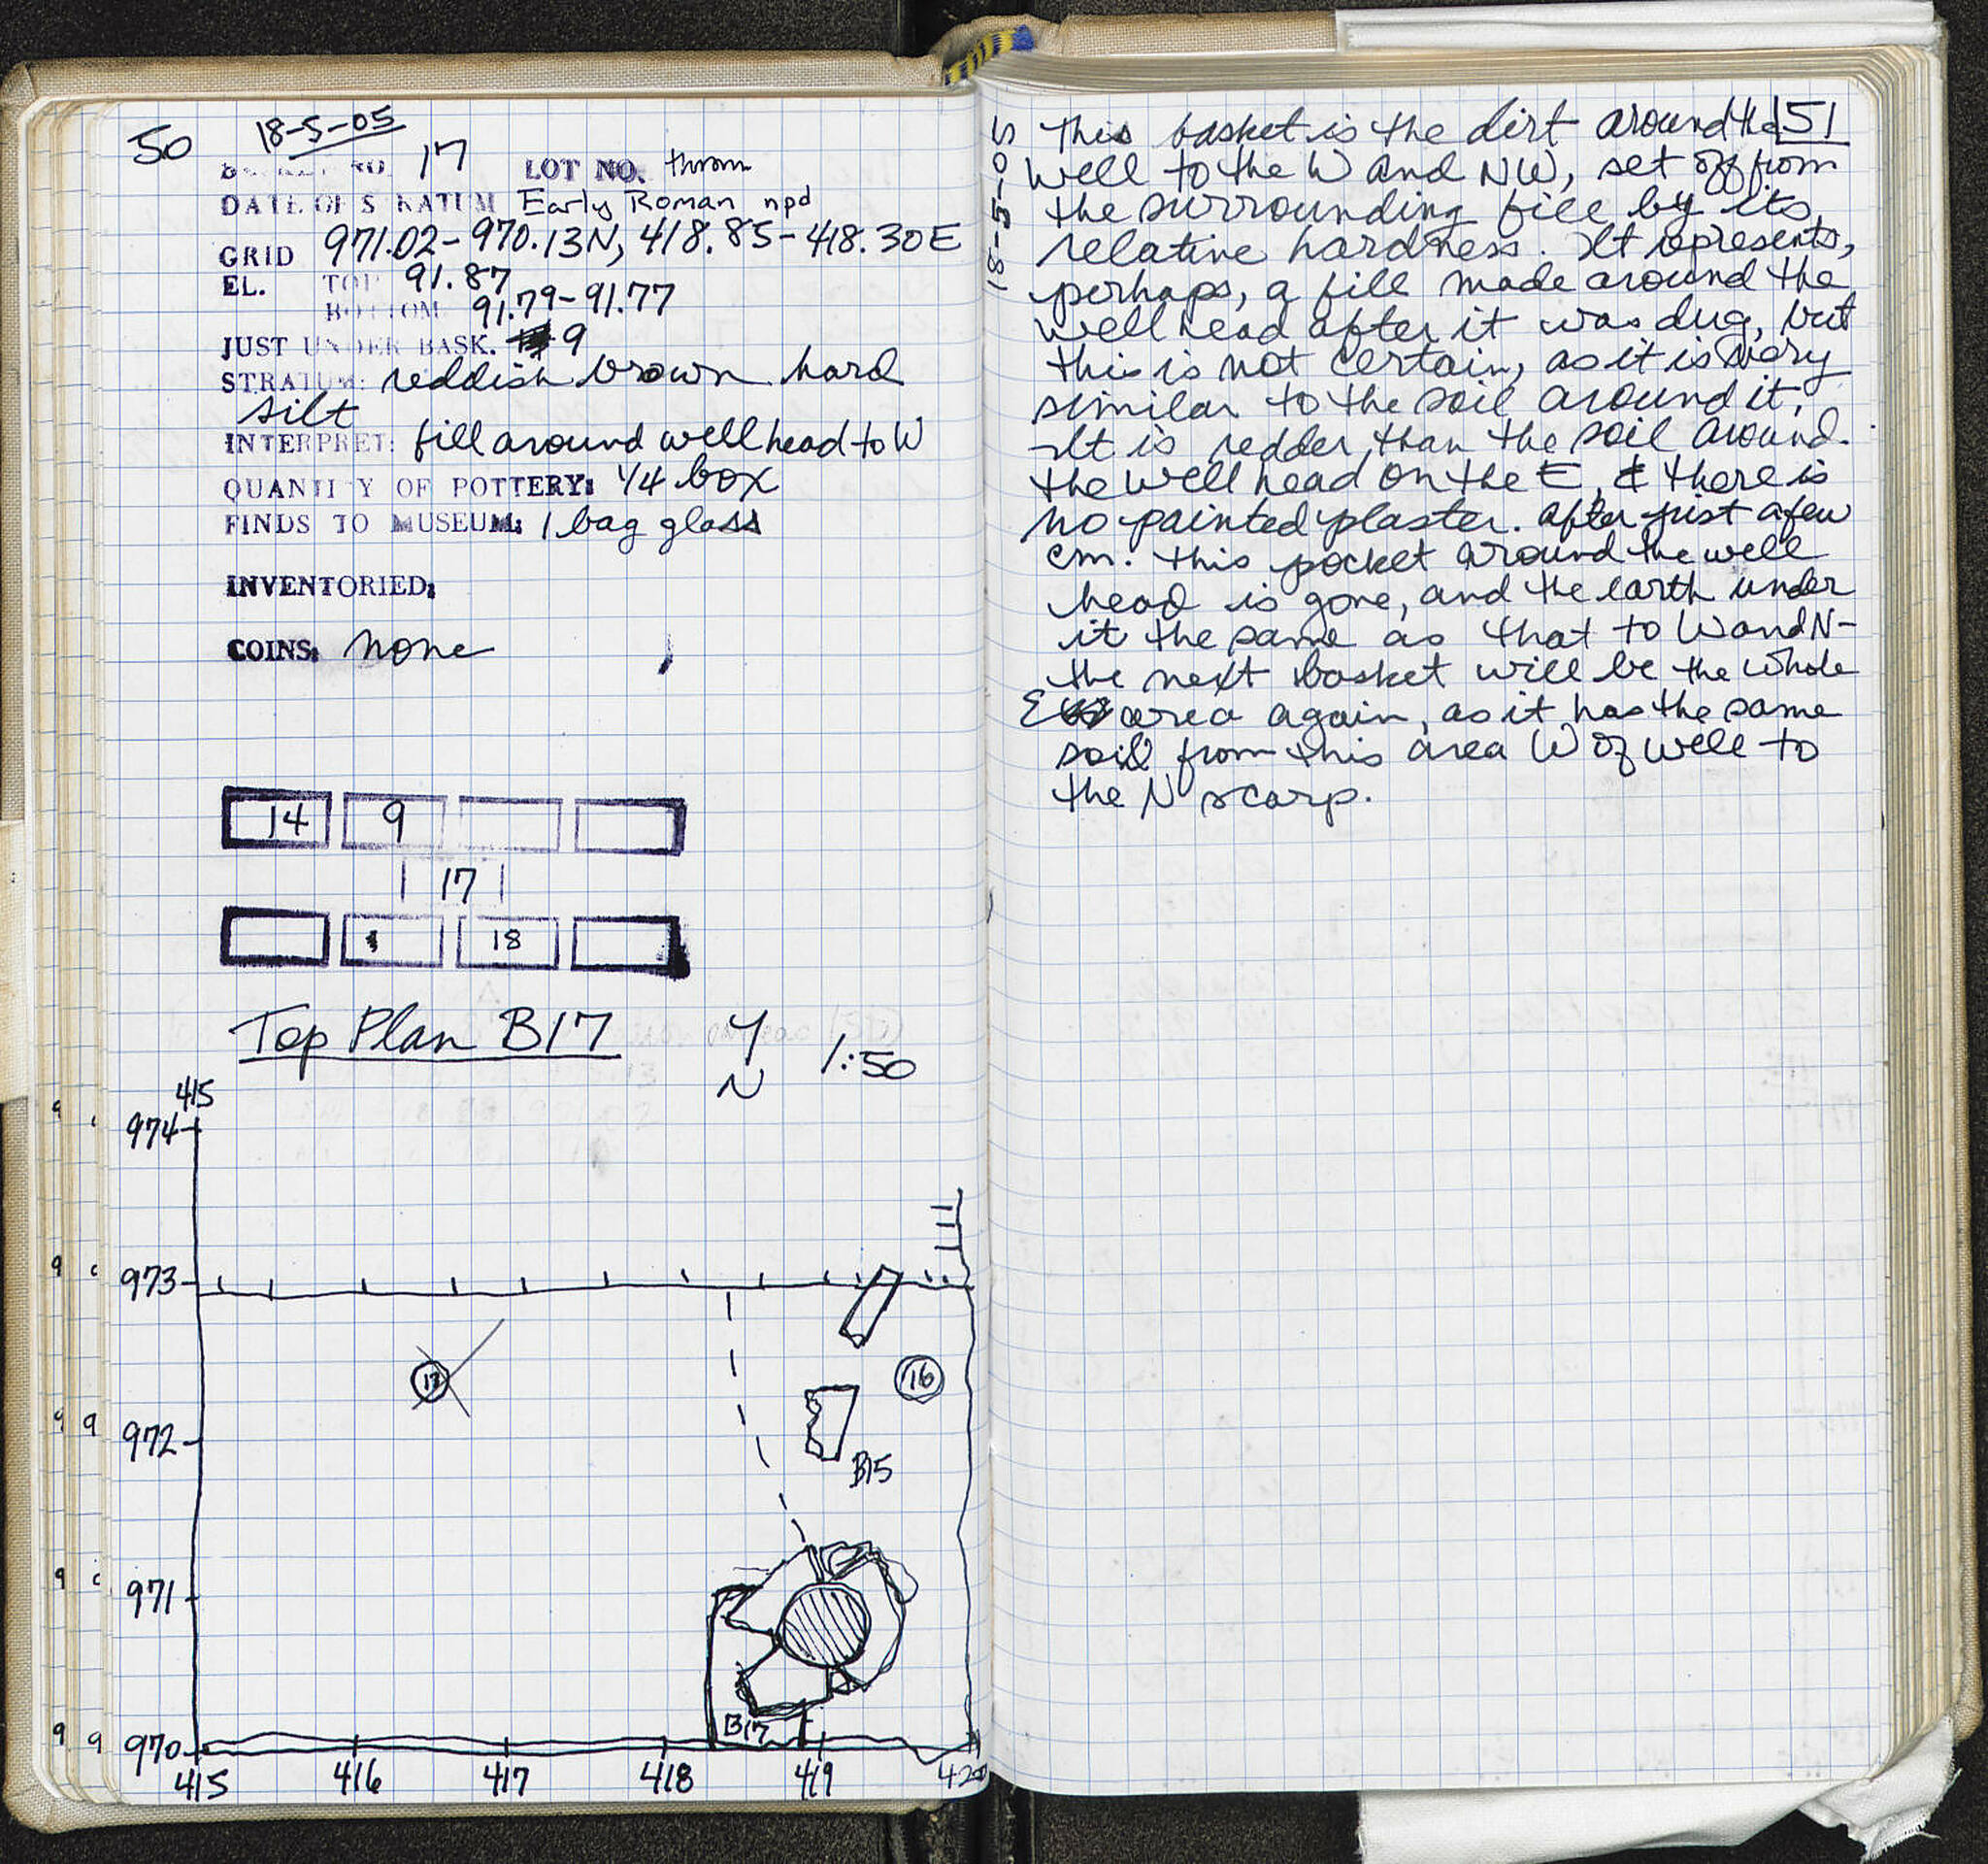 50 18-5-05
BASKET NO. 17 LOT NO. thrown
DATE OF STRATUM Early Roman npd
GRID 971.02-970.13N, 418.85-418.30E
EL. TOP 91.87
BOTTOM 91.79-91.77
JUST UNDER BASK. 9
STRATUM: reddish brown hard
silt
INTERPRET: fill around wellhead to W
QUANTITY OF POTTERY: 1/4 box
FINDS TO MUSEUM: 1 bag glass
INVENTORIED:
COINS: none
14 9
17
18
Top Plan B17 N 1:50
415
974
973
16
972
B15
971
B17
970
415 416 417 418 419 420
51
18-5-05
This basket is the dirt around the
well to the W and NW, set off from
the surrounding fill by its
relative hardness. It represents,
perhaps, a fill made around the
well head after it was dug, but
this is not certain, as it is very
similar to the soil around it.
It is redder than the soil around
the well head on the E, & there is
no painted plaster. After just a few
cm. this pocket around the well
head is gone, and the earth under
it the same as that to W and N-
the next basket will be the whole
E area again, as it has the same
soil from this area W of well to
the N scarp.